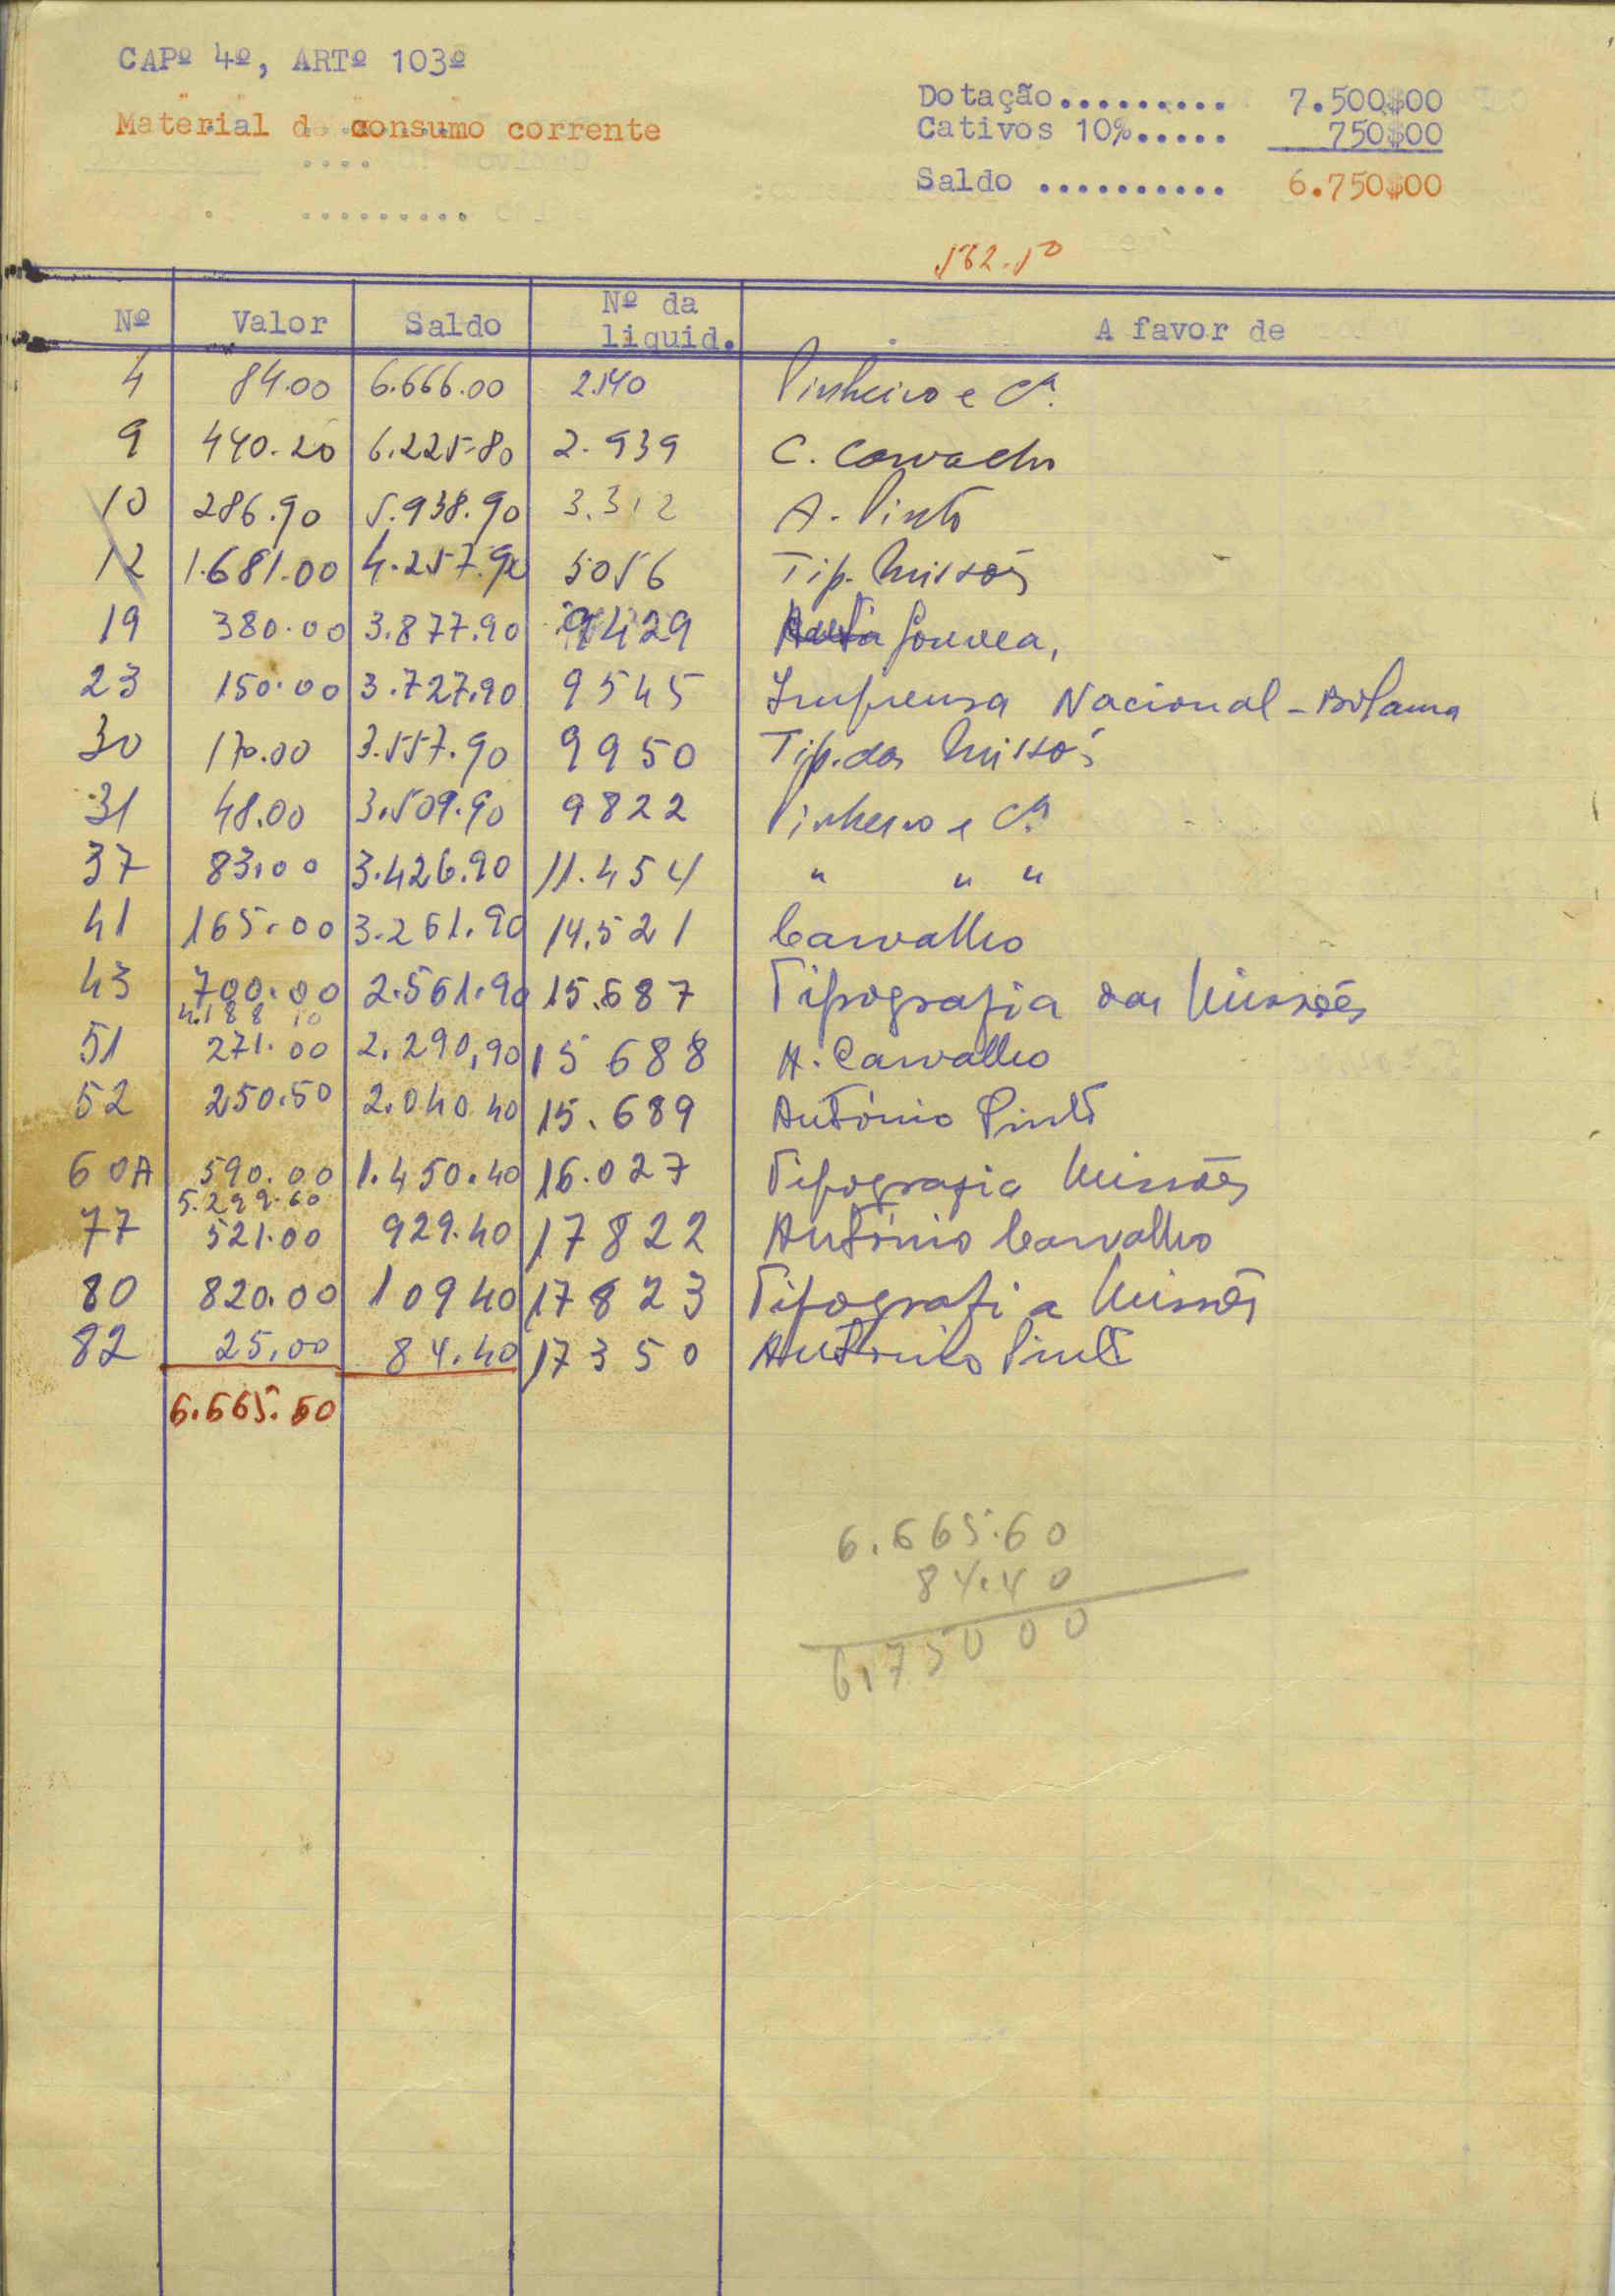 CAPº 4º, ARTº 103º
Material de consumo corrente
Dotação......... 7.500$00
Cativos 10%..... 750$00
Saldo .......... 6.750$00
562.50
Nº Valor Saldo Nº da liquid. A favor de
4 84.00 6.666.00 2.140 Pinheiro e Cª.
9 440.20 6.225.80 2.939 C. Carvalho
10 286.90 5.938.90 3.312 A. Pinto
12 1.681.00 4.257.90 5056 Tip. Missões
19 380.00 3.877.90 9429 Gouvea,
23 150.00 3.727.90 9545 Imprensa Nacional - Bolama
30 170.00 3.557.90 9950 Tip. das Missões
31 48.00 3.509.90 9822 Pinheiro e Cª
37 83.00 3.426.90 11.454 " " "
41 165.00 3.261.90 14.521 Carvalho
43 700.00 2.561.90 15.687 Tipografia das Missões
4.188 10
51 271.00 2.290,90 15688 A. Carvalho
52 250.50 2.040.40 15.689 António Pinto
60A 590.00 1.450.40 16.027 Tipografia Missões
5.299.60
77 521.00 929.40 17822 António Carvalho
80 820.00 109 40 17823 Tipografia Missões
82 25.00 84.40 17350 António Pinto
6.665.60
6.665.60
84.40
6.750 00